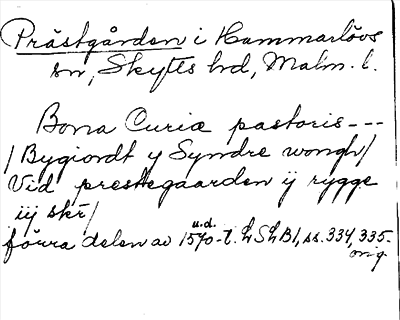 Prästgården i Hammarlövs
sn, Skytts hd, Malm. l.
Bona Curiæ pastoris ---
/ Bygiordt y Syndre wongh /
Vid prestegaarden ij rygge
iij skr /
förra delen av 1570-t. LShBl, ss. 334, 335.
u.d.
orig.